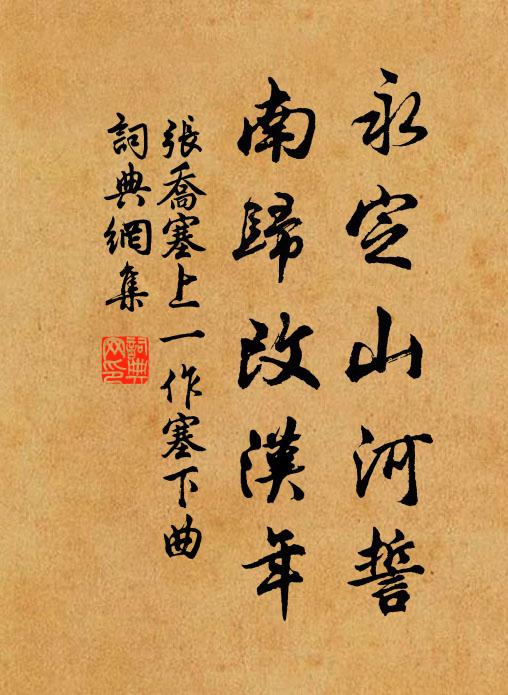 永定山河誓
南歸改漢年
張喬塞上一作塞下曲
詞典網集
詞典網印